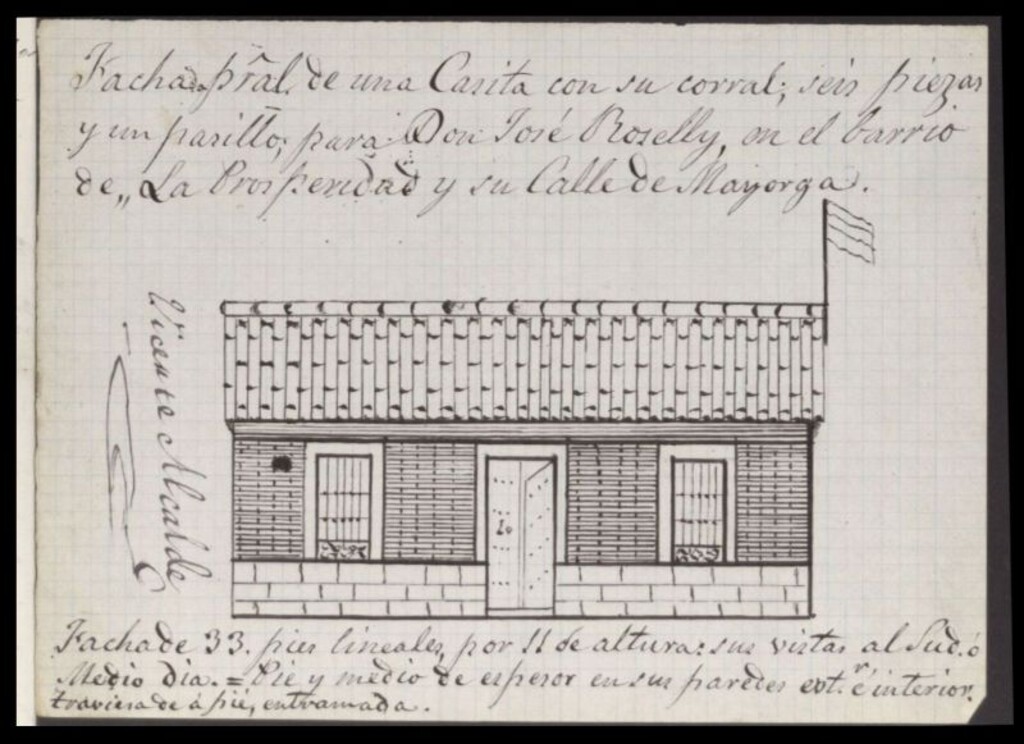 Fachada pral. de una Casita con su corral; seis piezas
y un pasillo; para Don José Roselly, en el barrio
de „La Prosperidad y su Calle de Mayorga.
Vicente Alcalde
Fachada de 33. pies lineales, por 11 de altura: sus vistas al Sud. ó
Medio dia. = Pie y medio de espesor en sus paredes extr. é interior.
traviesa de á pié, entramada.